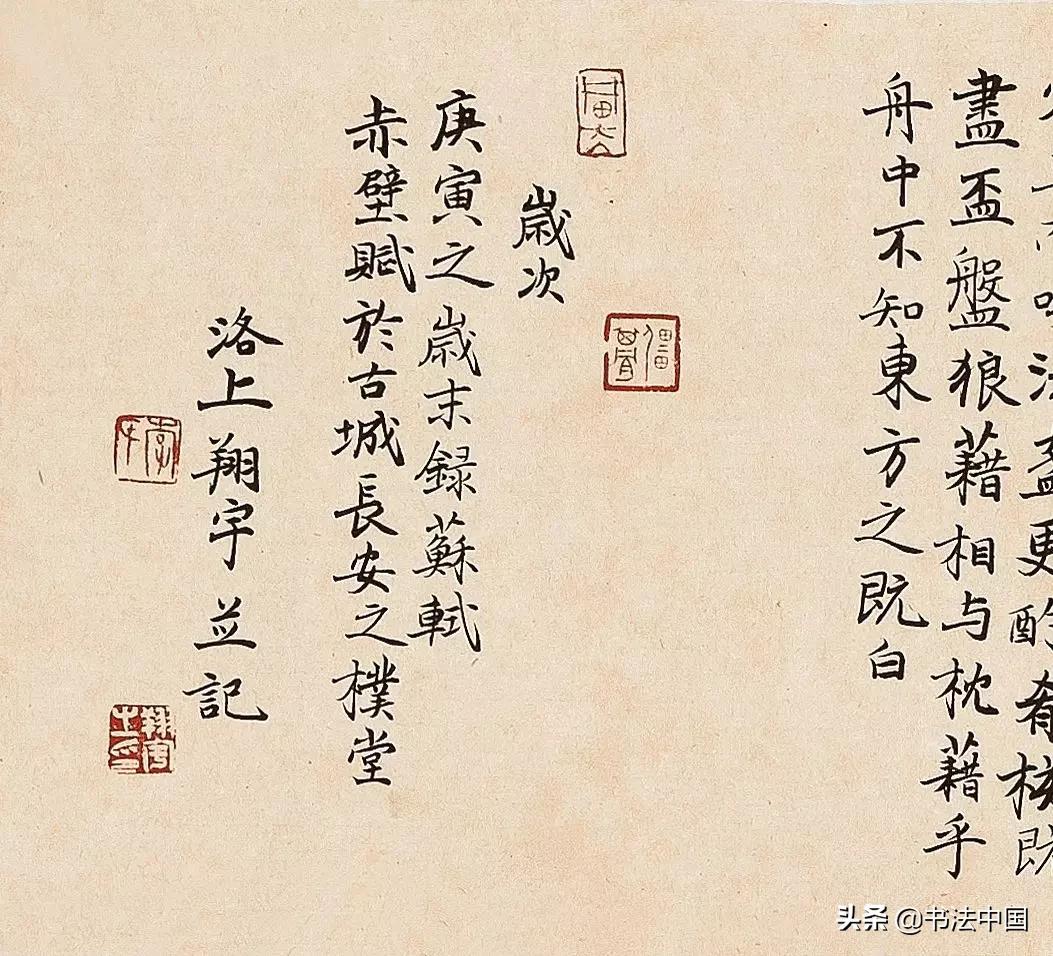 更酌肴核既
盡盃盤狼藉相与枕藉乎
舟中不知東方之既白
歲次
庚寅之歲末錄蘇軾
赤壁賦於古城長安之樸堂
洛上翔宇並記
头条 @书法中国